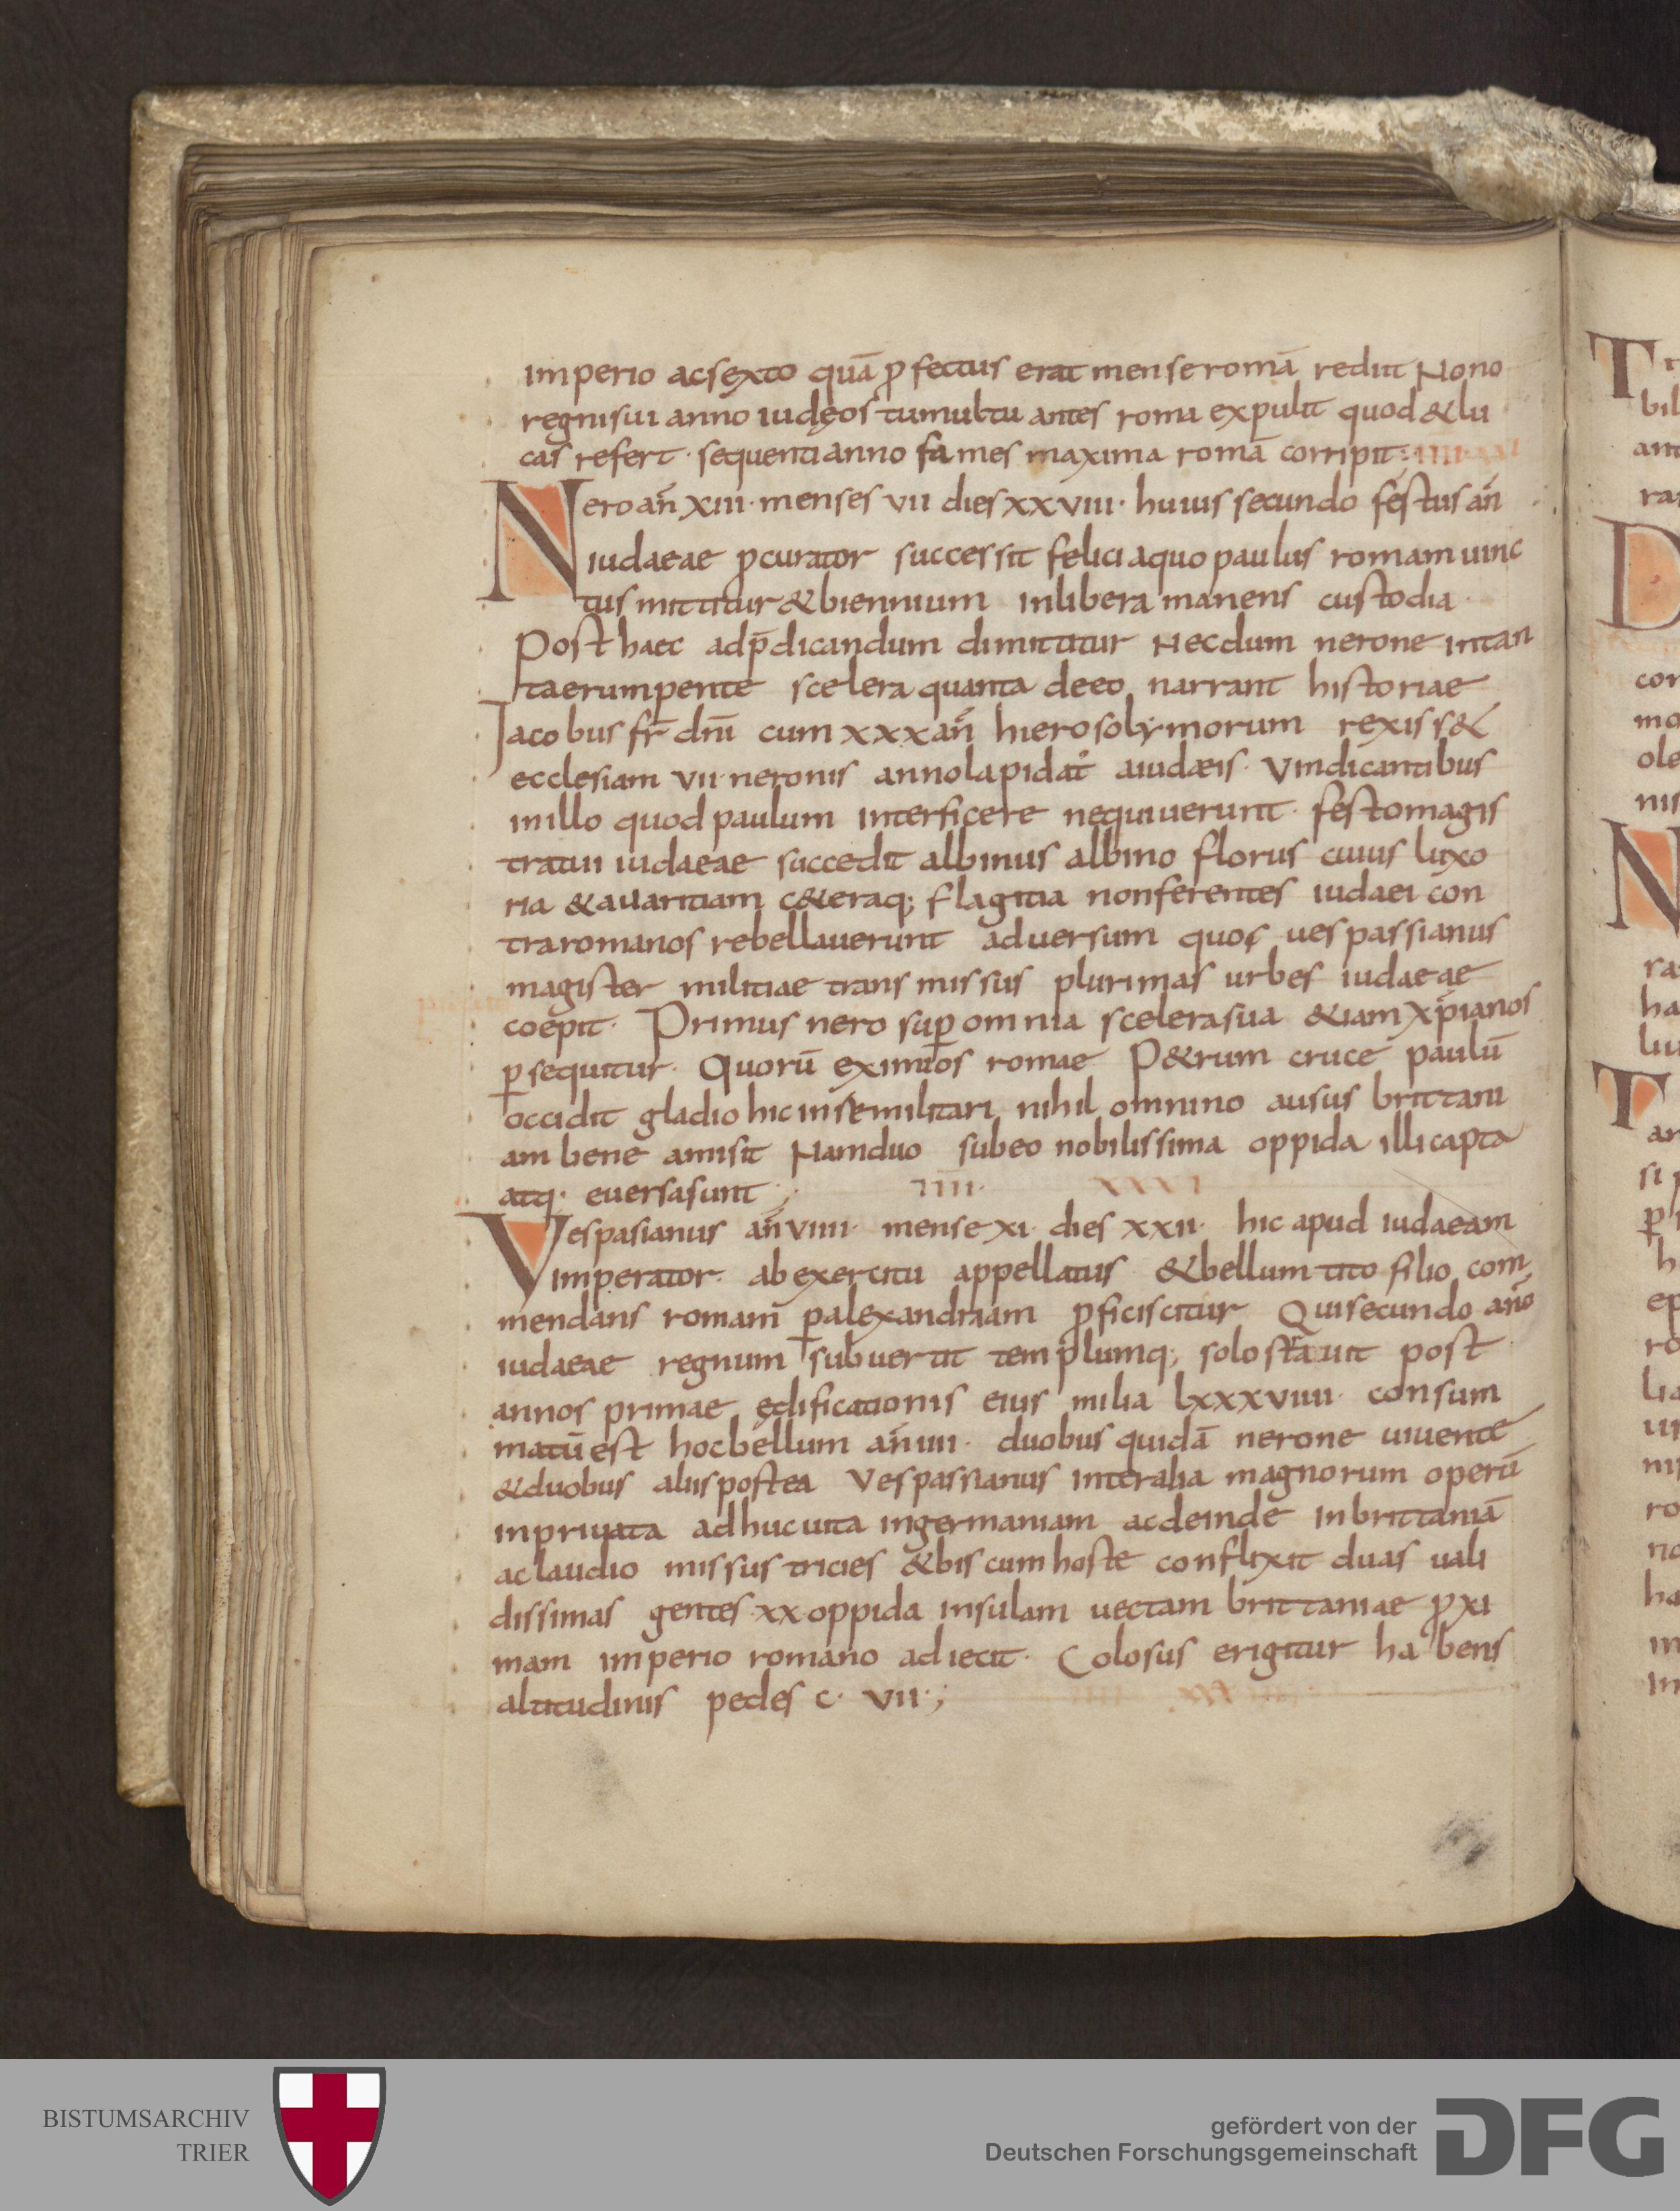 imperio ac sexto quā ꝓfectus erat mense romā rediit Nono
regni sui anno iudęos tumultu antes roma expulit quod & lu
cas refert · sequenti anno fames maxima romā corripit:
Nero an̄ XIII · menses VII dies XXVIII · huius secundo festus an̄
iudaeae ꝓcurator successit felici a quo paulus romam uinc
tus mittitur & biennium in libera manens custodia
Post haec ad p̄dicandum dimittitur Necdum nerone in tan
ta erumpente scelera quanta de eo narrant historiae
Jacobus fr̄ dn̄i cum XXX an̄ hierosolymorum rexiss&
ecclesiam VII · neronis anno lapidat᷑ a iudæis · Vindicantibus
in illo quod paulum interficere nequiuerunt · festo magis
tratui iudaeae succedit albinus albino florus cuius luxo
ria & auaritiam c&eraq; flagitia non ferentes iudaei con
tra romanos rebellauerunt aduersum quos uespassianus
magister militiae transmissus plurimas urbes iudaeae
coepit · Primus nero suꝑ omnia scelera sua &iam xp̄ianos
ꝑsequitur · Quorū eximios romae P&rum cruce paulū
occidit gladio hic in re militari nihil omnino ausus brittani
am bene amisit Nam duo sub eo nobilissima oppida illi capta
atq· euersa sunt ;
Vespasianus an̄ VIIII · mense XI · dies XXII · hic apud iudaeam
imperator · ab exercitu appellatus & bellum tito filio com
mendans romam ꝑ alexandriam ꝓficiscitur Qui secundo an̄o
iudaeae regnum subuertit templumq; solo strauit post
annos primae ędificationis eius milia LXXXVIIII · consum
matū est hoc bellum an̄ IIII · duobus quidā nerone uiuente
& duobus aliis postea Vespassianus inter alia magnorum operū
in priuata adhuc uita in germaniam ac deinde in brittaniā
a claudio missus tricies & bis cum hoste conflixit duas uali
dissimas gentes XX oppida insulam uectam brittaniae ꝓxi
mam imperio romano adiecit · Colosus erigitur habens
altitudinis pedes C · VII · ;
BISTUMSARCHIV
TRIER
gefördert von der
Deutschen Forschungsgemeinschaft
DFG